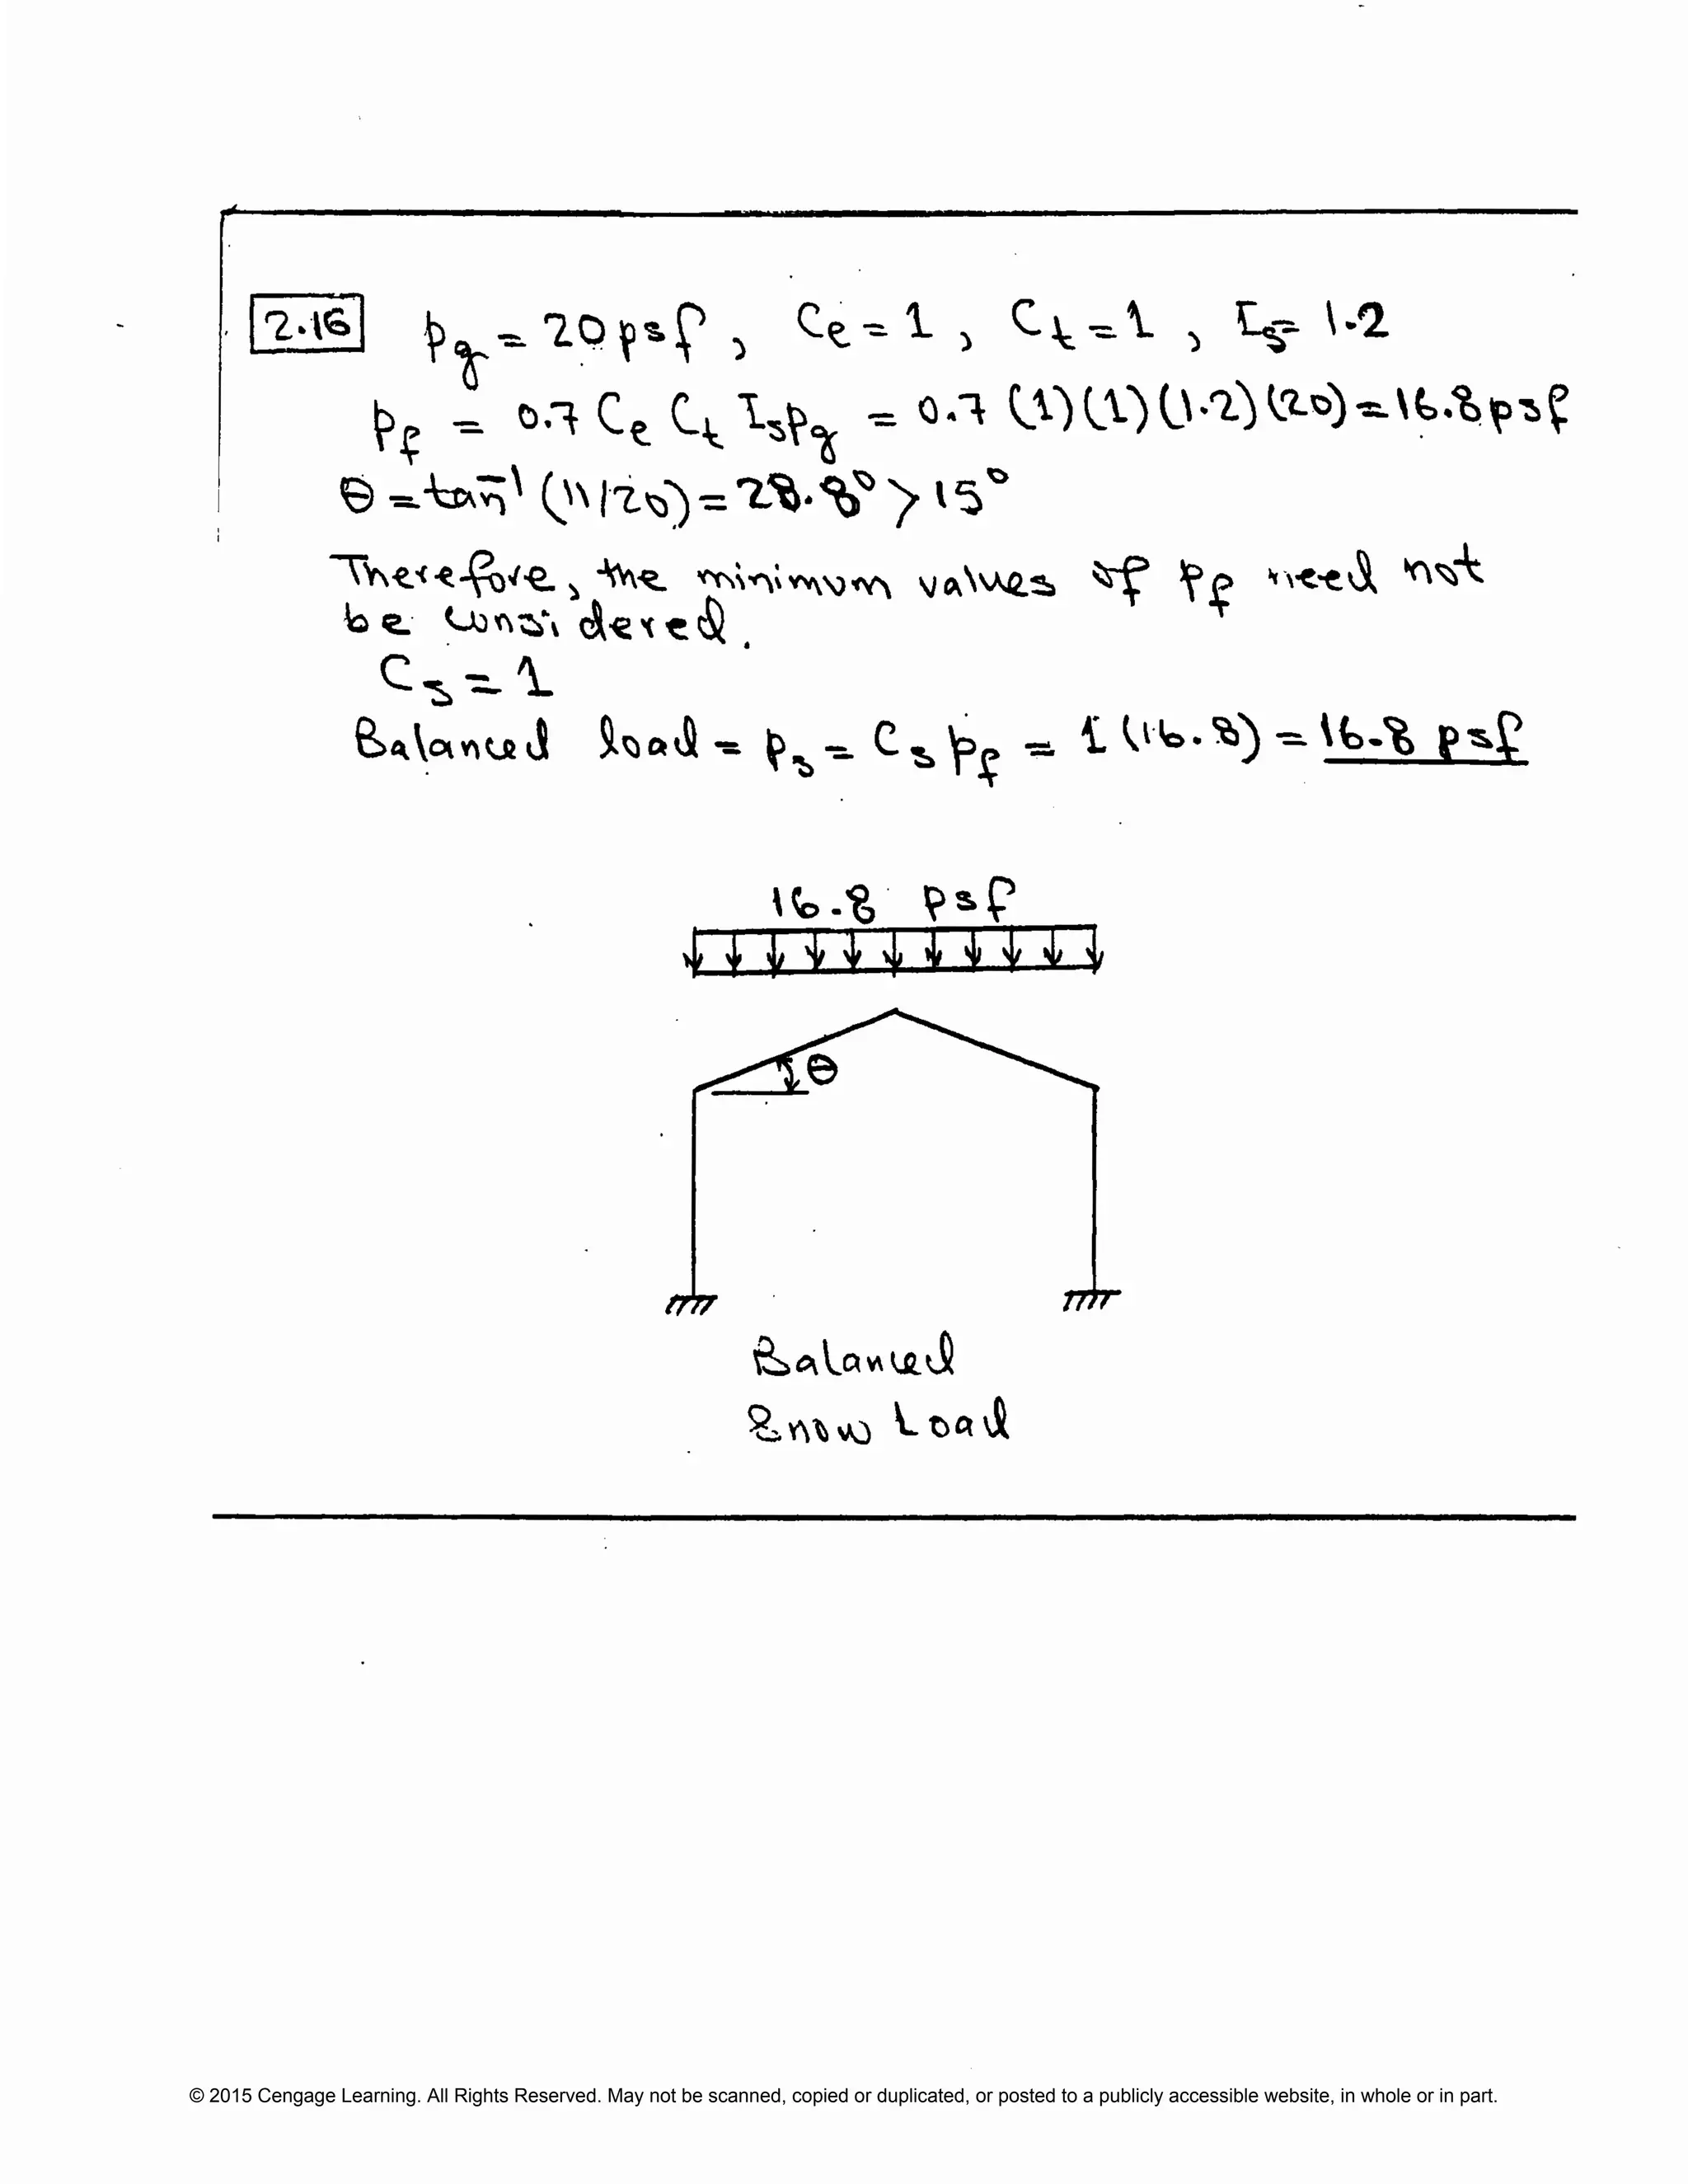 2.16 pg = 20 psf, Ce = 1, Ct = 1, Is = 1.2
pf = 0.7 Ce Ct Is pg = 0.7 (1)(1)(1.2)(20) = 16.8 psf
θ = tan⁻¹ (11/20) = 28.8° > 15°
Therefore, the minimum values of pf need not
be considered.
Cs = 1
Balanced load = ps = Cs pf = 1 (16.8) = 16.8 psf
16.8 psf
θ
Balanced
Snow Load
© 2015 Cengage Learning. All Rights Reserved. May not be scanned, copied or duplicated, or posted to a publicly accessible website, in whole or in part.